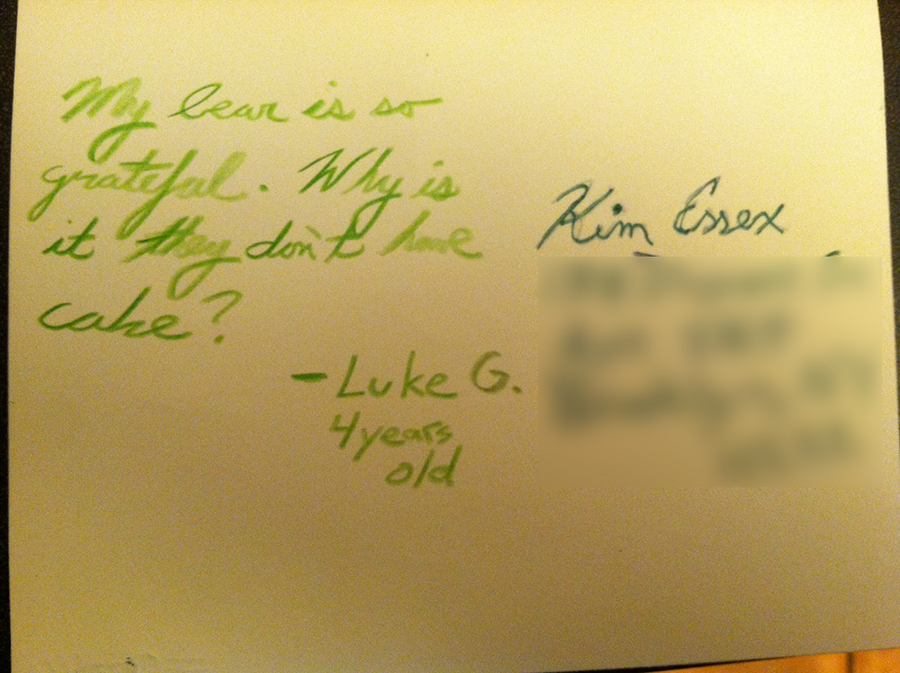 My bear is so
grateful. Why is
it they don't have
cake?
- Luke G.
4 years
old
Kim Essex